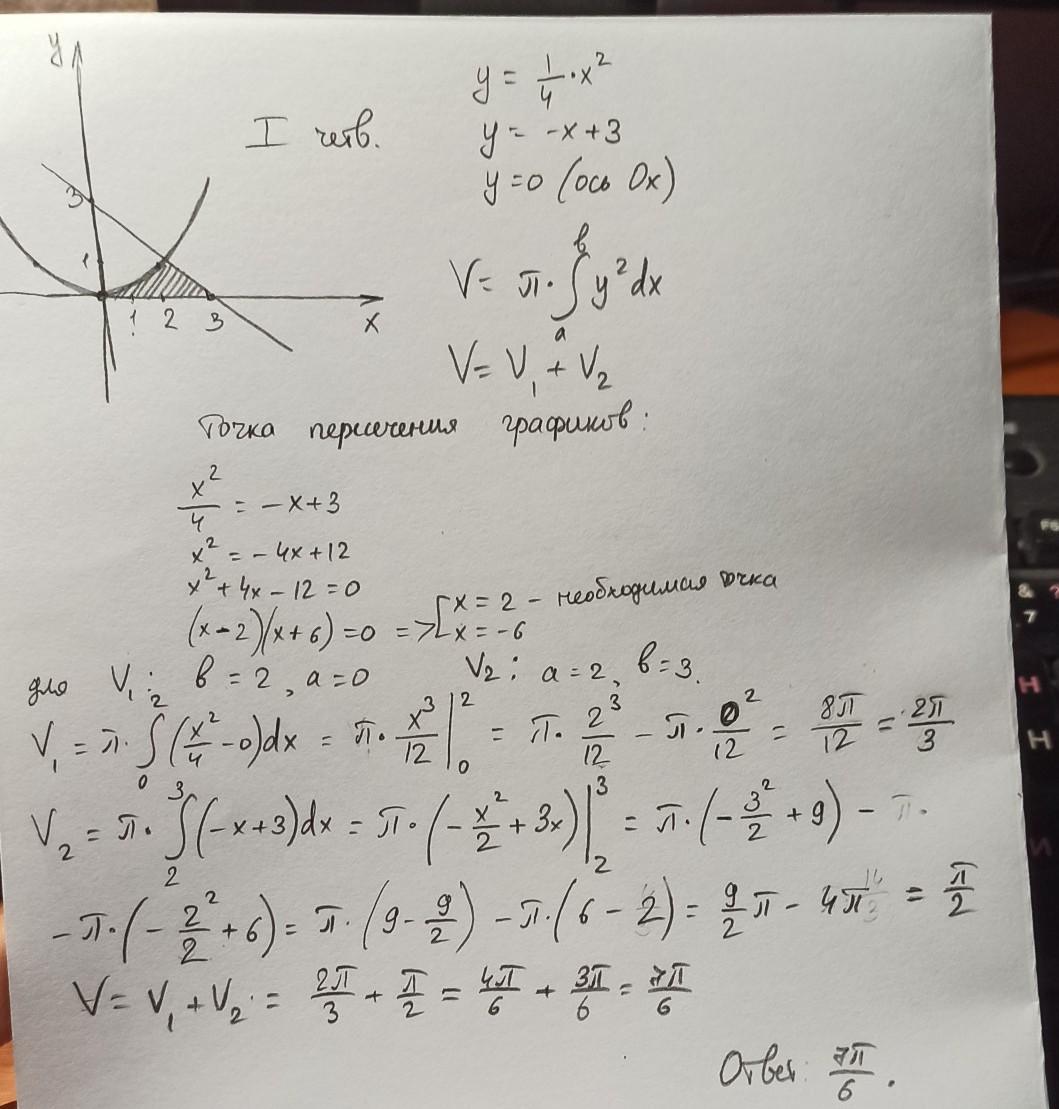 y
y = 1/4 · x²
I четв.
y = -x + 3
3
y = 0 (ось Ox)
1
1 2 3
x
V = π · ∫ₐᵇ y² dx
V = V₁ + V₂
Точка пересечения графиков:
x²/4 = -x + 3
x² = -4x + 12
x² + 4x - 12 = 0
(x - 2)(x + 6) = 0 => [ x = 2 - необходимая точка
x = -6
для V₁: в = 2, a = 0 V₂: a = 2, в = 3.
V₁ = π · ∫₀² (x²/4 - 0) dx = π · x³/12 |₀² = π · 2³/12 - π · 0²/12 = 8π/12 = 2π/3
V₂ = π · ∫₂³ (-x + 3) dx = π · (-x²/2 + 3x) |₂³ = π · (-3²/2 + 9) -
- π · (-2²/2 + 6) = π · (9 - 9/2) - π · (6 - 2) = 9/2 π - 4π = π/2
V = V₁ + V₂ = 2π/3 + π/2 = 4π/6 + 3π/6 = 7π/6
Ответ: 7π/6.